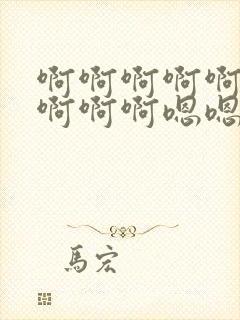 啊啊啊啊啊
啊啊啊嗯嗯
馬宏